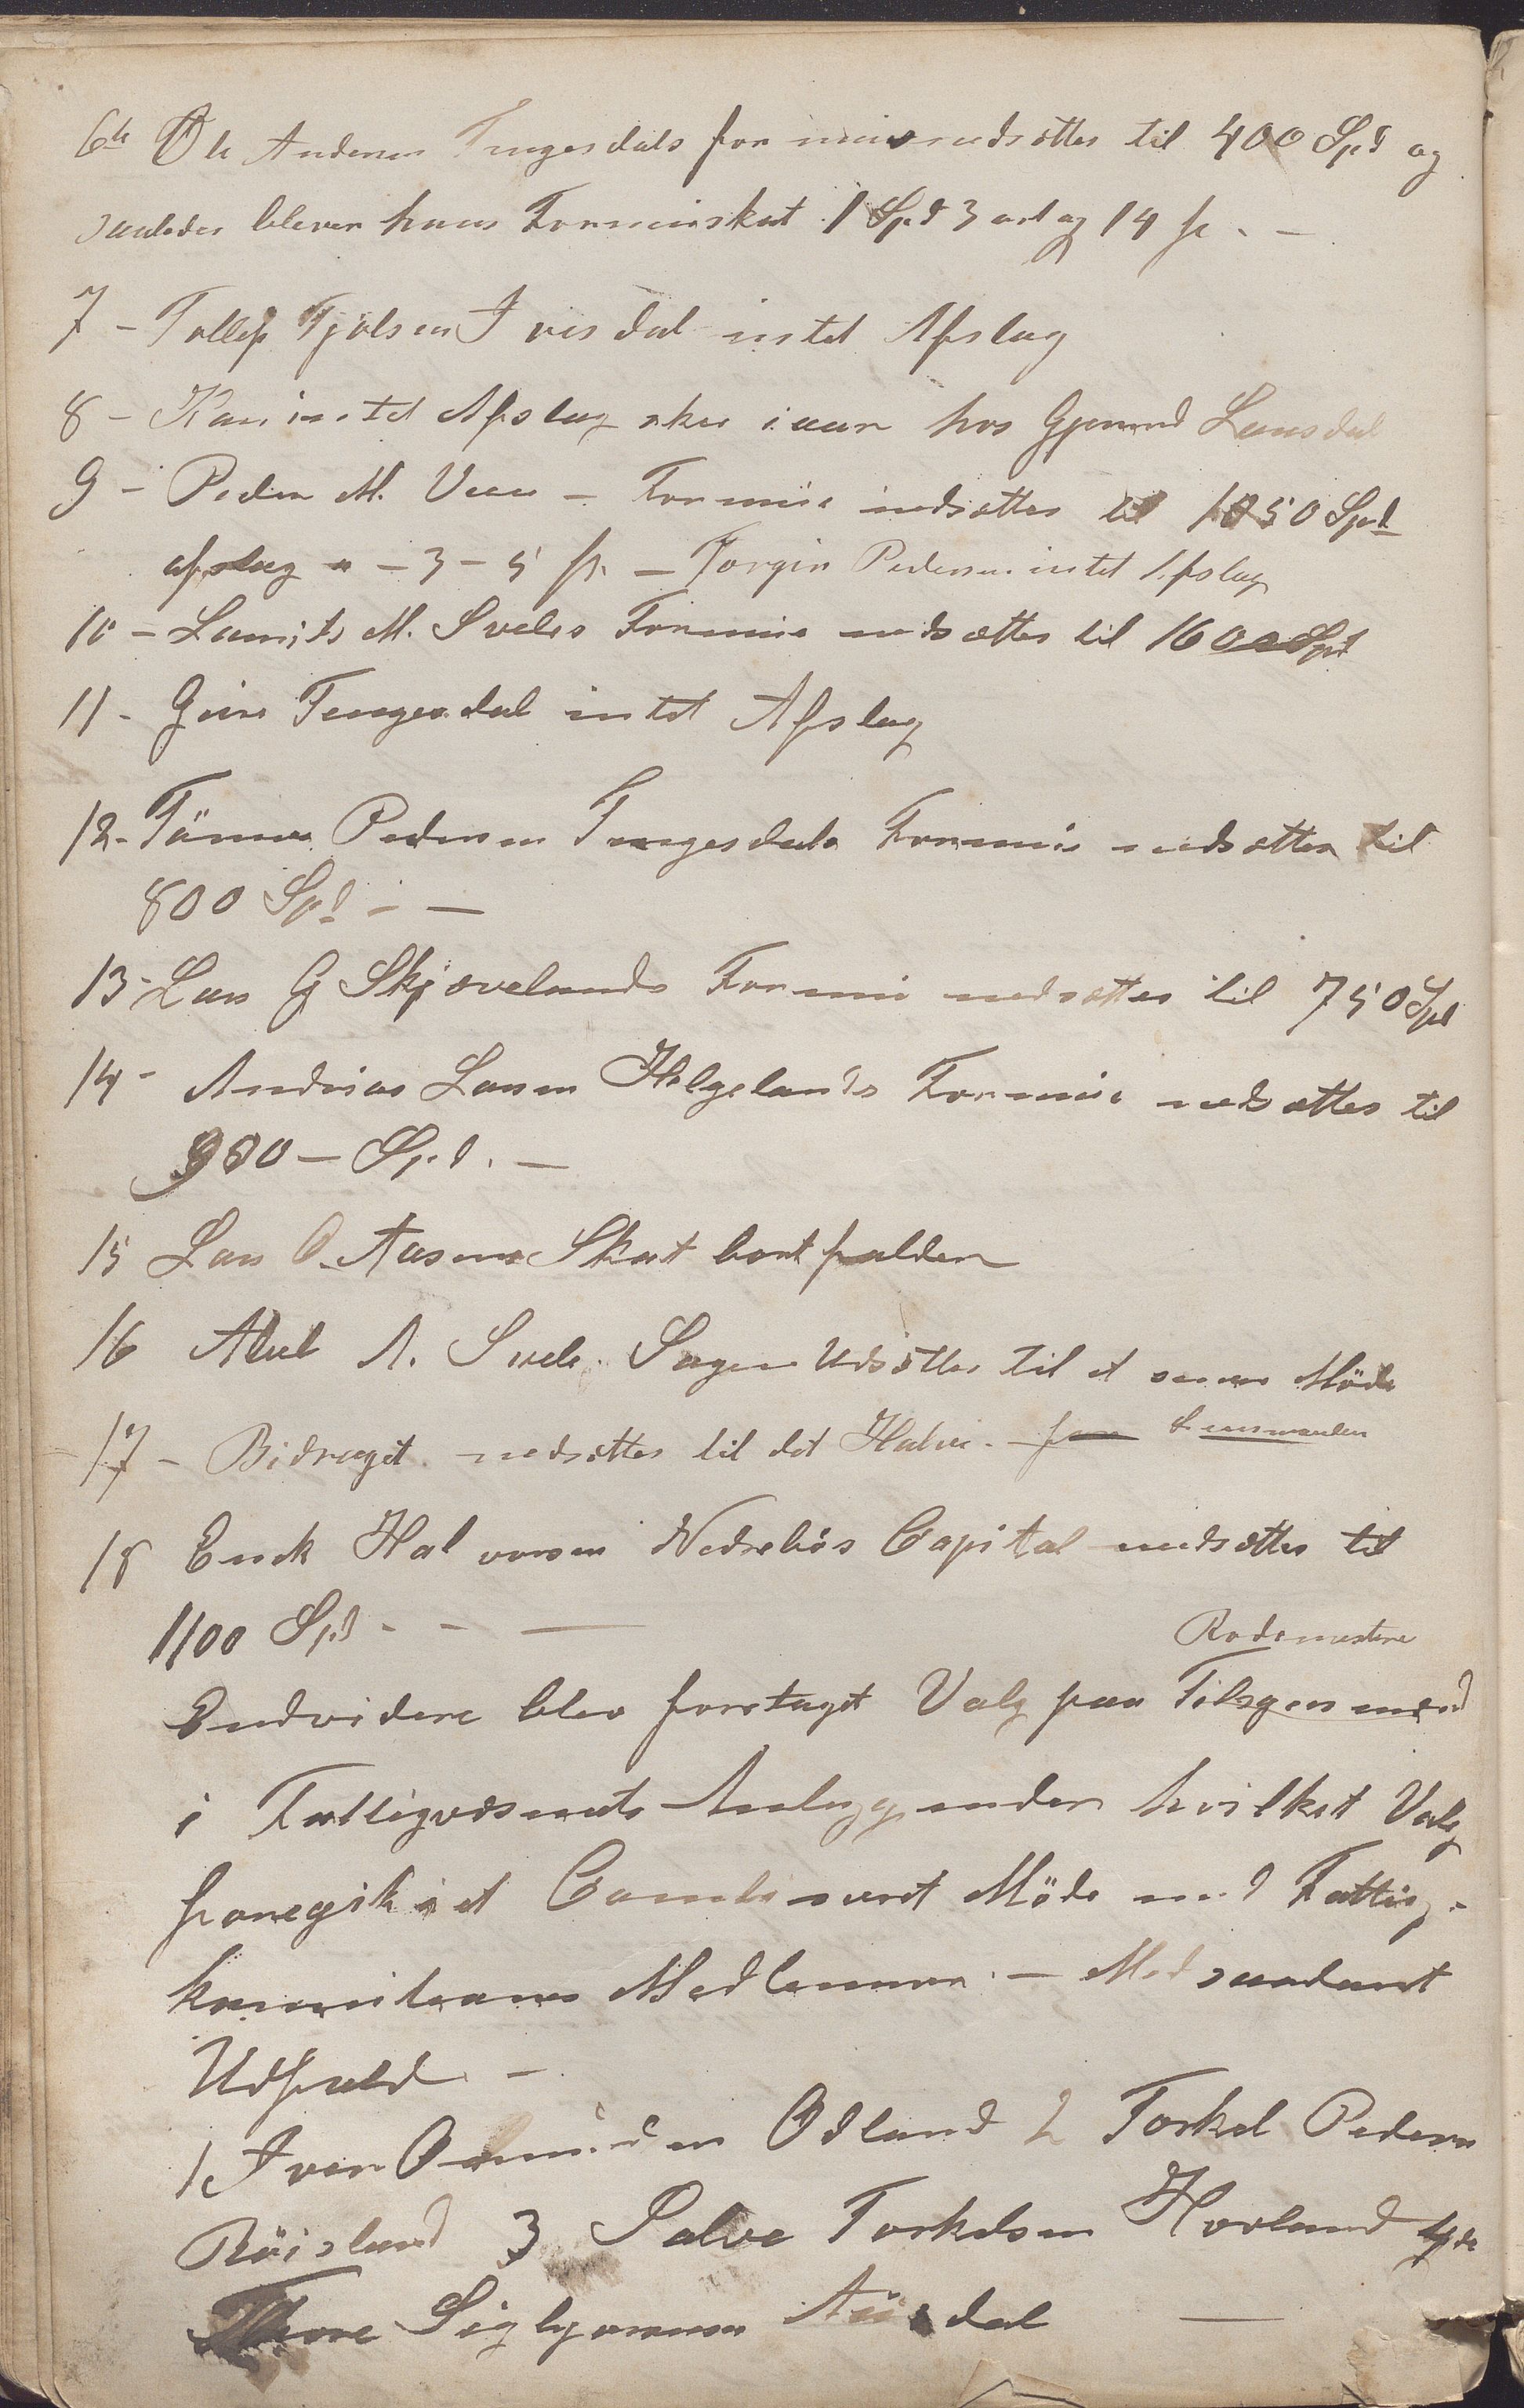 6te Ole Andersen Tengesdals formue nedsættes til 400 Spd og
saaledes bliver hans Formueskat 1 Spd 3 ort og 14 s. –
7 – Tollef Tjølsen Ivesdal intet Afslag
8 – Kan intet Afslag skee iaar hos Gjermund Lausdal
9 – Peder M. Veen – Formue nedsættes til 1050 Spd
afslag " – 3 – 5 s. – Torgin Pedersen intet Afslag
10 – Laurits M. Sveles Formue nedsættes til 1600 Spd
11 – Geire Tengesdal intet Afslag
12 – Tönnes Pedersen Tengesdals Formue nedsættes til
800 Spd – –
13 – Lars G Skjævelands Formue nedsættes til 750 Spd
14 – Andreas Larsen Helgelands Formue nedsættes til
900 – Spd. –
15 Lars O. Aasens Skat bortfalder
16 A. Svele. Sagen Udsættes til et senere Möde
17 – Bidraget nedsættes til det Halve. – for Lensmanden
18 Enok Halvorsen Nedrebös Capital nedsættes til
1100 Spd – – –
Rodemestere
Endvidere blev foretaget Valg paa Tilsynsmænd
i Fattigvæsenets Anliggender hvilket Valg
foregik i et Combineret Möde med Fattig-
kommisionens Medlemmer. – Med saadant
Udfald –
1 Iver Odland 2 Torkel Pedersen
Röisland 3 Salve Torkelsen Hovland 4de
Thore Sigbjörnsen